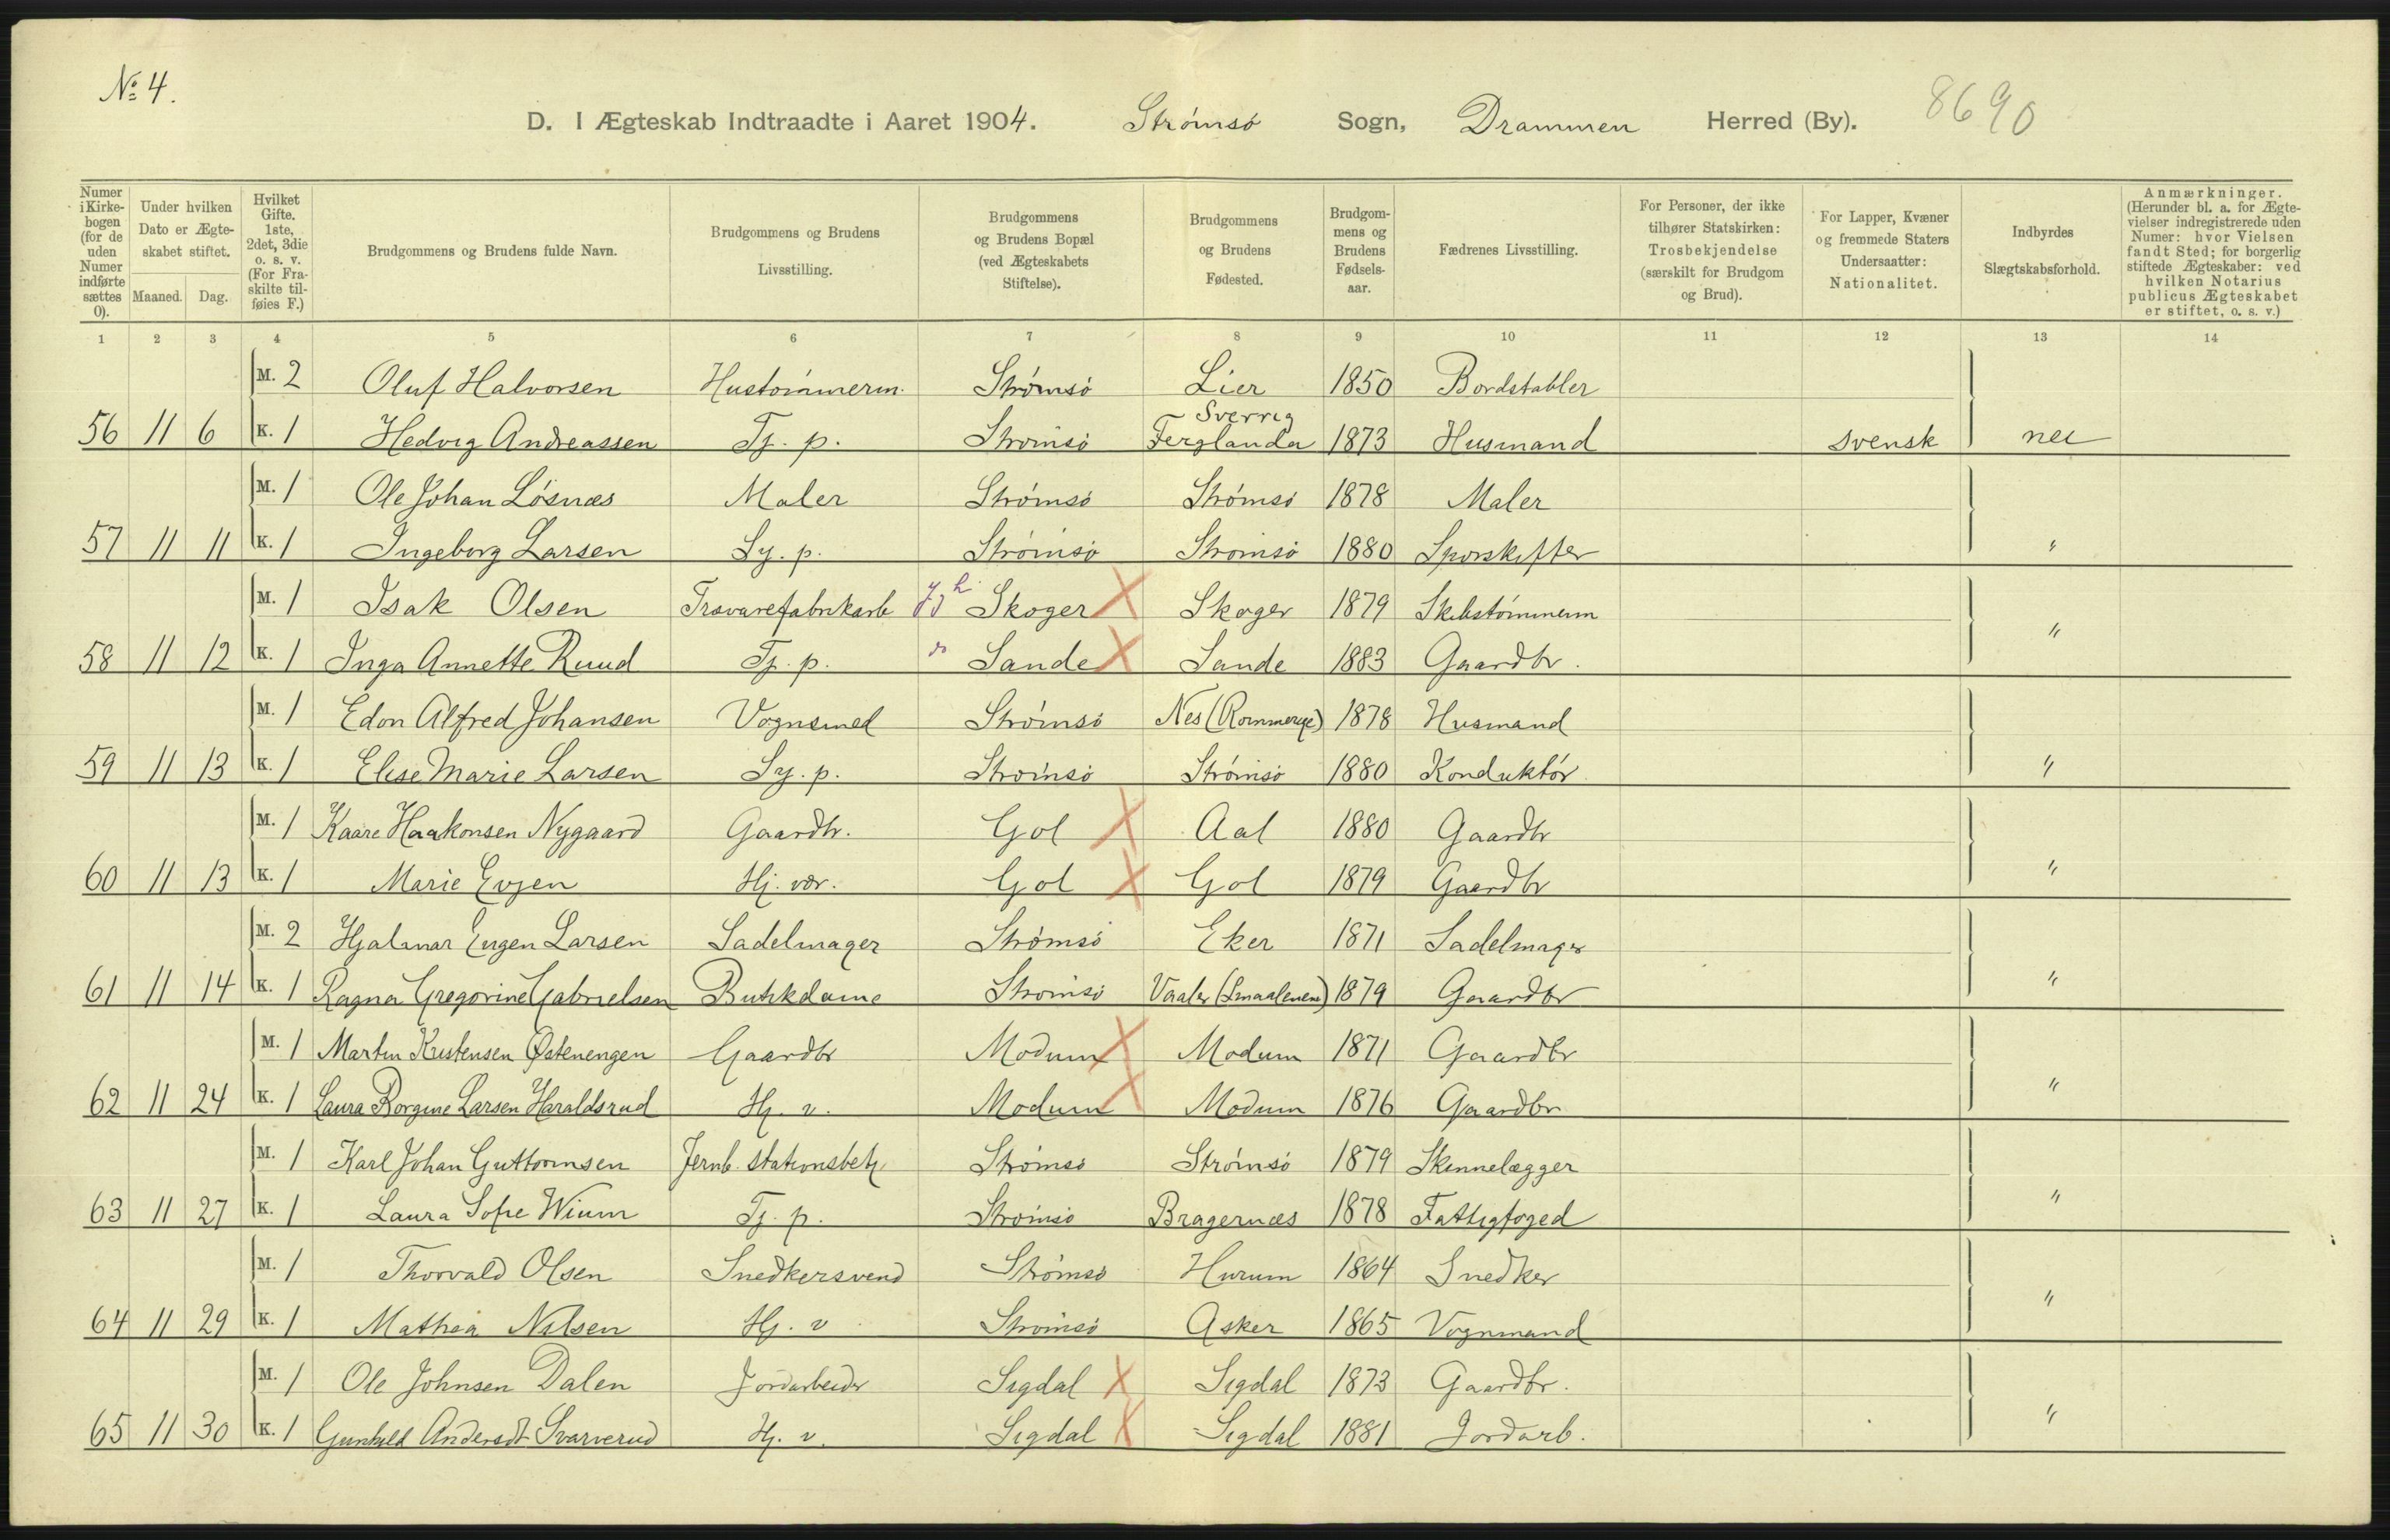 № 4.
D. I Ægteskab Indtraadte i Aaret 1904. Strømsø Sogn, Drammen Herred (By). 8690
Numer i Kirkebogen (for de uden Numer indførte sættes 0). Under hvilken Dato er Ægteskabet stiftet. Maaned. Dag. Hvilket Gifte. 1ste, 2det, 3die o. s. v. (For Fraskilte tilføies F.) Brudgommens og Brudens fulde Navn. Brudgommens og Brudens Livsstilling. Brudgommens og Brudens Bopæl (ved Ægteskabets Stiftelse). Brudgommens og Brudens Fødested. Brudgommens og Brudens Fødselsaar. Fædrenes Livsstilling. For Personer, der ikke tilhører Statskirken: Trosbekjendelse (særskilt for Brudgom og Brud). For Lapper, Kvæner og fremmede Staters Undersaatter: Nationalitet. Indbyrdes Slægtskabsforhold. Anmærkninger. (Herunder bl. a. for Ægtevielser indregistrerede uden Numer: hvor Vielsen fandt Sted; for borgerlig stiftede Ægteskaber: ved hvilken Notarius publicus Ægteskabet er stiftet, o. s. v.)
1 2 3 4 5 6 7 8 9 10 11 12 13 14
M. 2 Oluf Halvorsen Hustømmerm. Strømsø Lier 1850 Bordstabler
56 11 6 K. 1 Hedvig Andreassen Tj. p. Strømsø Sverrig Ferglanda 1873 Husmand svensk nei
M. 1 Ole Johan Løsnæs Maler Strømsø Strømsø 1878 Maler
57 11 11 K. 1 Ingeborg Larsen Sy. p. Strømsø Strømsø 1880 Sporskifter "
M. 1 Isak Olsen Trævarefabrikarb Skoger X Skoger 1879 Skibstømmerm
58 11 12 K. 1 Inga Annette Ruud Tj. p. Sande X Sande 1883 Gaardbr. "
M. 1 Edon Alfred Johansen Vognsmed Strømsø Nes (Rommerige) 1878 Husmand
59 11 13 K. 1 Elise Marie Larsen Sy. p. Strømsø Strømsø 1880 Konduktør "
M. 1 Kaare Haakonsen Nygaard Gaardbr. Gol X Aal 1880 Gaardbr
60 11 13 K. 1 Marie Evjen Hj. vær. Gol X Gol 1879 Gaardbr "
M. 2 Hjalmar Eugen Larsen Sadelmager Strømsø Eker 1871 Sadelmager
61 11 14 K. 1 Ragna Gregorine Gabrielsen Butikdame Strømsø Vaaler (Smaalenene) 1879 Gaardbr "
M. 1 Martin Kristensen Østenengen Gaardbr Modum X Modum 1871 Gaardbr
62 11 24 K. 1 Laura Borgine Larsen Haraldsrud Hj. v. Modum X Modum 1876 Gaardbr. "
M. 1 Karl Johan Guttormsen Jernb. stationsbetj Strømsø Strømsø 1879 Skinnelægger
63 11 27 K. 1 Laura Sofie Wium Tj. p. Strømsø Bragernæs 1878 Fattigfoged "
M. 1 Thorvald Olsen Snedkersvend Strømsø Hurum 1864 Snedker
64 11 29 K. 1 Mathea Nilsen Hj. v Strømsø Asker 1865 Vognmand "
M. 1 Ole Johnsen Dalen Jordarbeider Sigdal X Sigdal 1873 Gaardbr.
65 11 30 K. 1 Gunhild Andersdt Svarverud Hj. v. Sigdal X Sigdal 1881 Jordarb. "